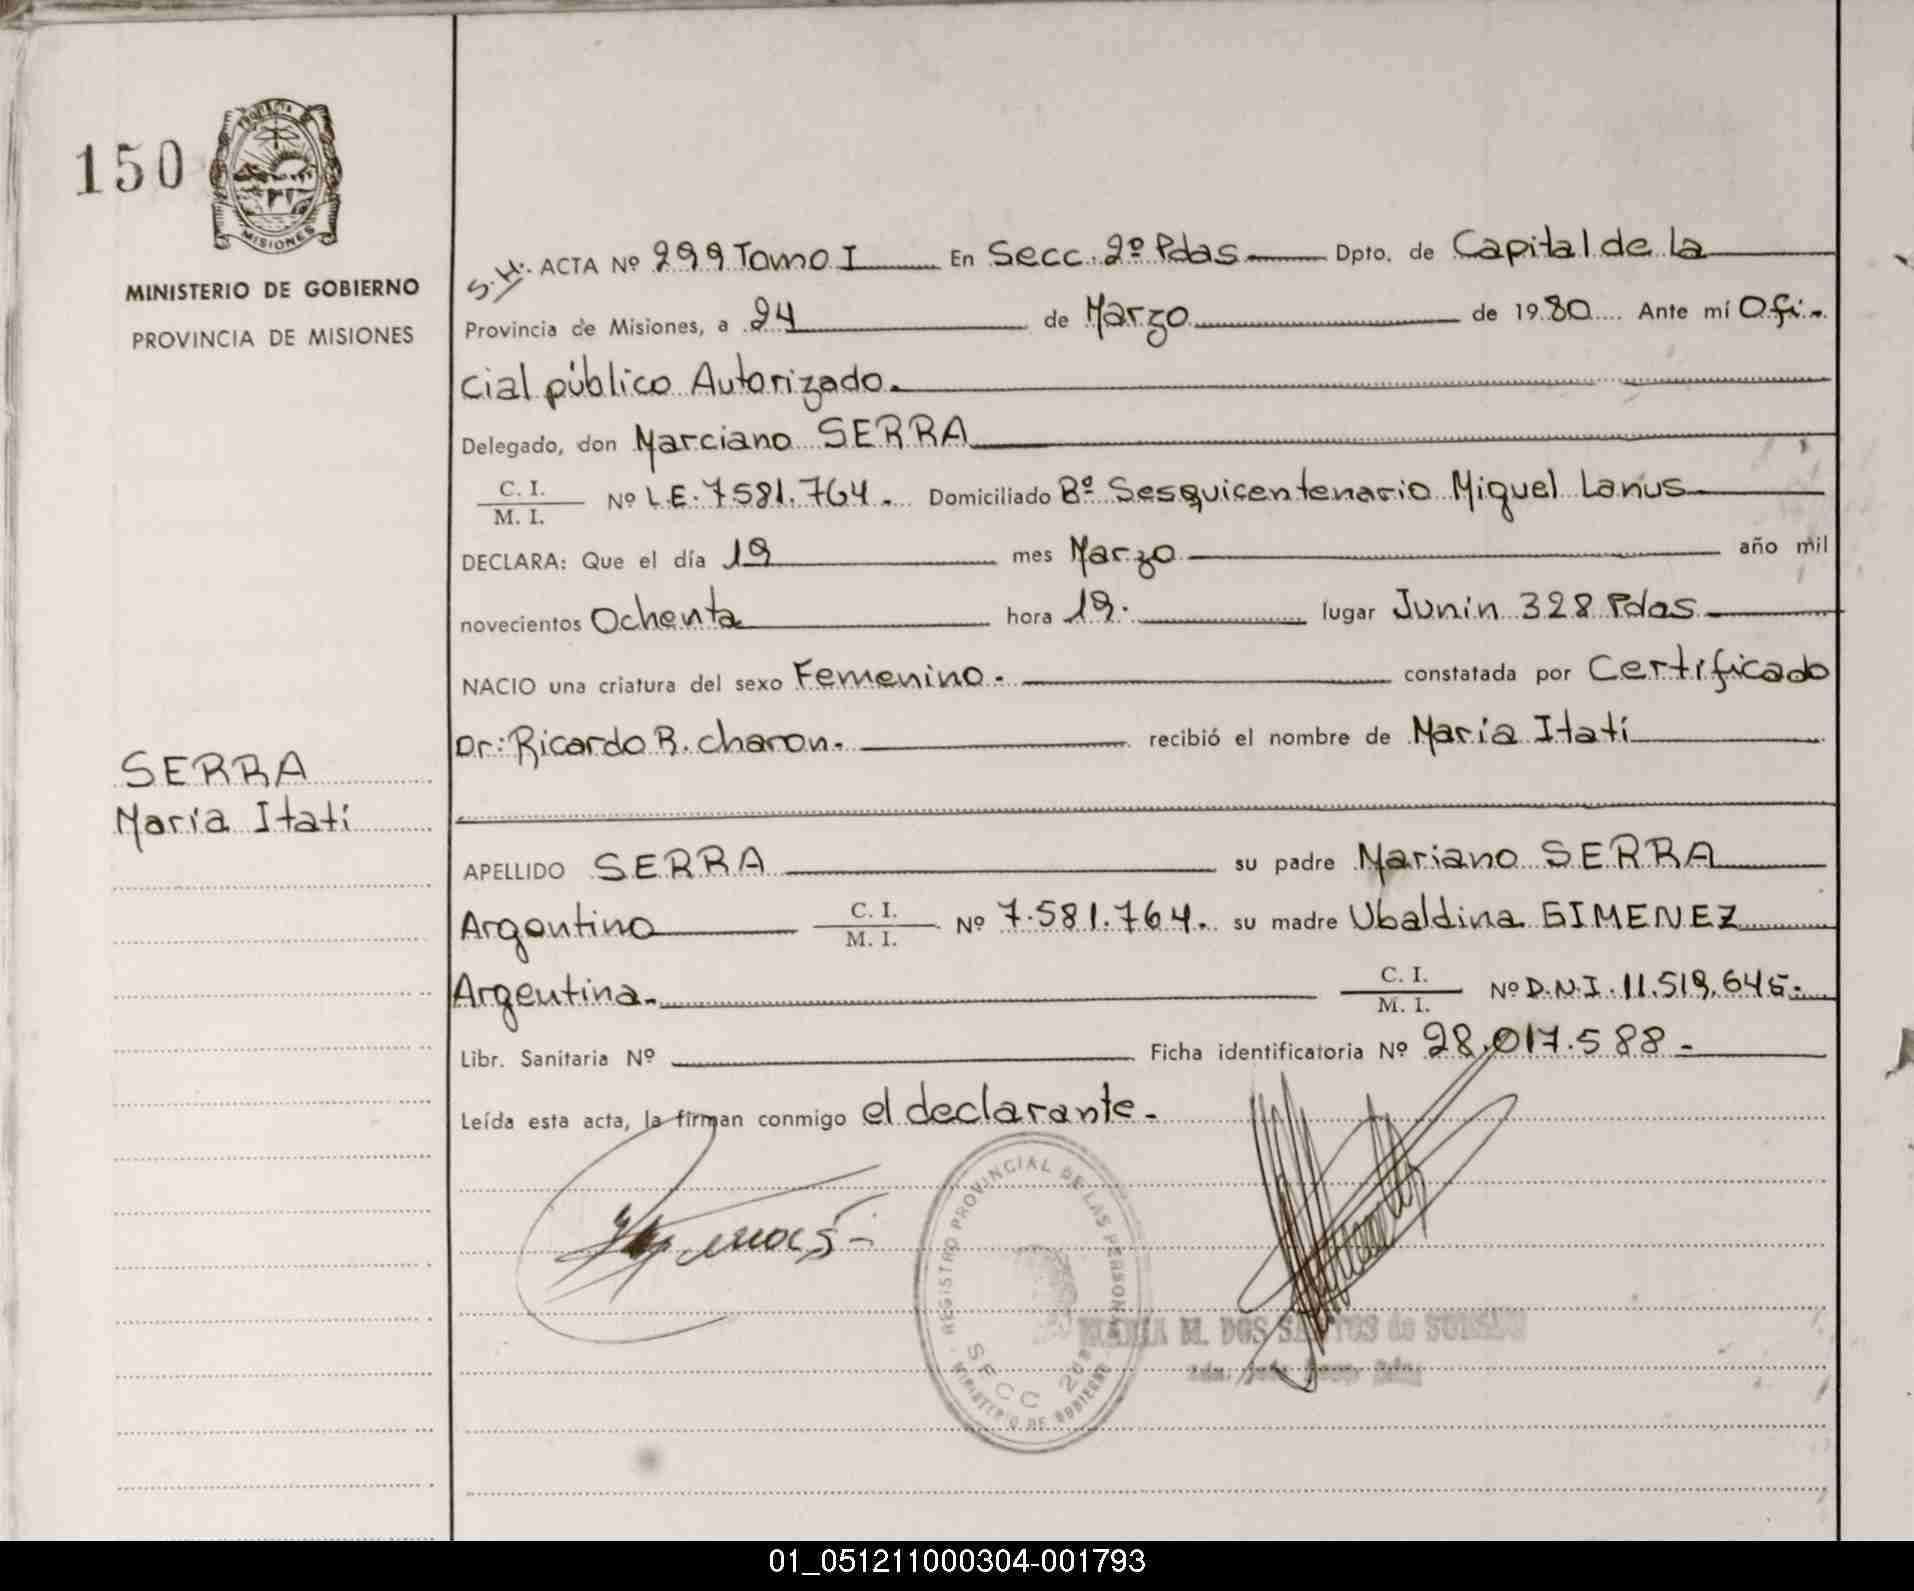 150
MISIONES
MINISTERIO DE GOBIERNO
PROVINCIA DE MISIONES
SERRA
María Itatí
S.H. ACTA Nº 299 Tomo I En Secc. 2º Pdas Dpto. de Capital de la
Provincia de Misiones, a 24 de Marzo de 1980 Ante mí Ofi-
cial público Autorizado.
Delegado, don Marciano SERRA
C. I.
M. I. Nº L.E. 7581.764. Domiciliado Bº Sesquicentenario Miguel Lanus
DECLARA: Que el día 19 mes Marzo año mil
novecientos Ochenta hora 19. lugar Junin 328 Pdas
NACIO una criatura del sexo Femenino. constatada por Certificado
Dr: Ricardo R. charon. recibió el nombre de María Itatí
APELLIDO SERRA su padre Mariano SERRA
Argentino C. I. M. I. Nº 7.581.764. su madre Ubaldina GIMENEZ
Argentina. C. I. M. I. Nº D.N.I. 11.519.645.
Libr. Sanitaria Nº Ficha identificatoria Nº 28.017.588-
Leída esta acta, la firman conmigo el declarante-
REGISTRO PROVINCIAL DE LAS PERSONAS
SECC 2da
MINISTERIO DE GOBIERNO
MARIA M. DOS SANTOS de
01_051211000304-001793